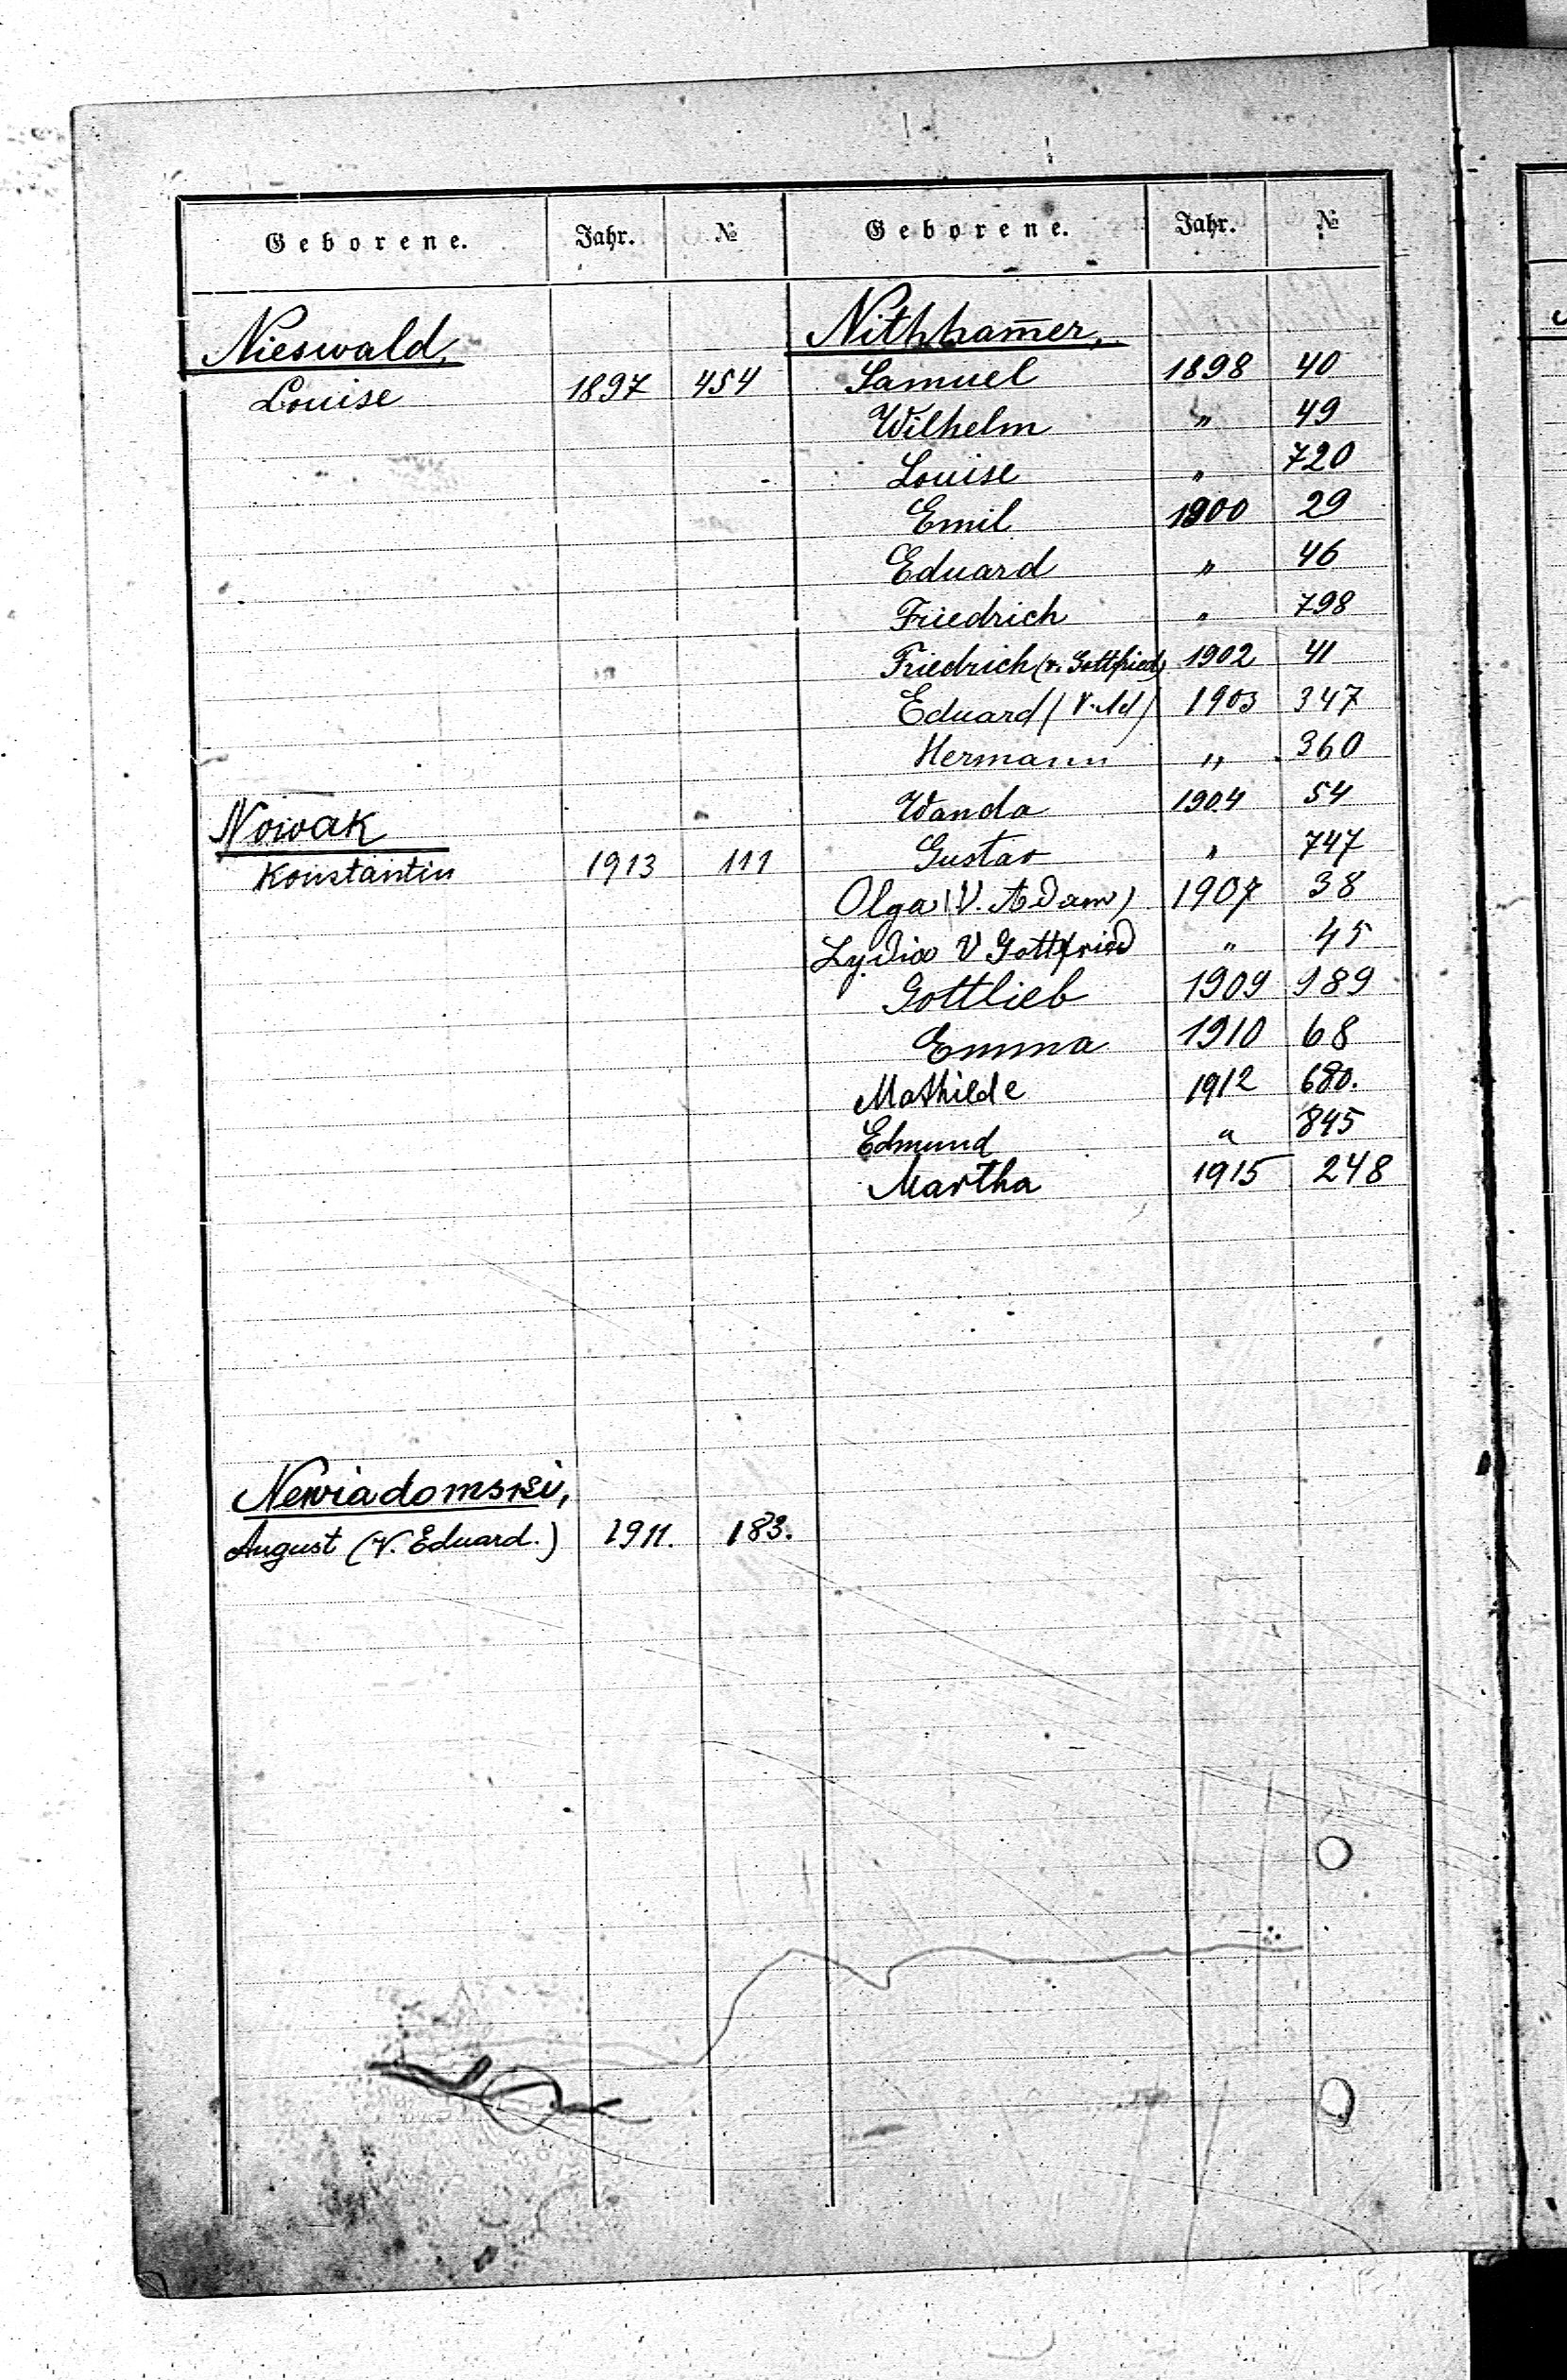 Geborene. Jahr. № Geborene. Jahr. №
Nieswald,
Louise 1897 454
Nowak
Konstantin 1913 111
Newiadomski,
August (V. Eduard.) 1911. 183.
Nithham̅er,
Samuel 1898 40
Wilhelm " 49
Louise " 720
Emil 1900 29
Eduard " 46
Friedrich " 798
Friedrich (v. Gottfried) 1902 41
Eduard (V. Ad) 1903 347
Hermann " 360
Wanda 1904 54
Gustav " 747
Olga (V. Adam) 1907 38
Lydia V Gottfried " 45
Gottlieb 1909 989
Emma 1910 68
Mathilde 1912 680.
Edmund " 845
Martha 1915 248